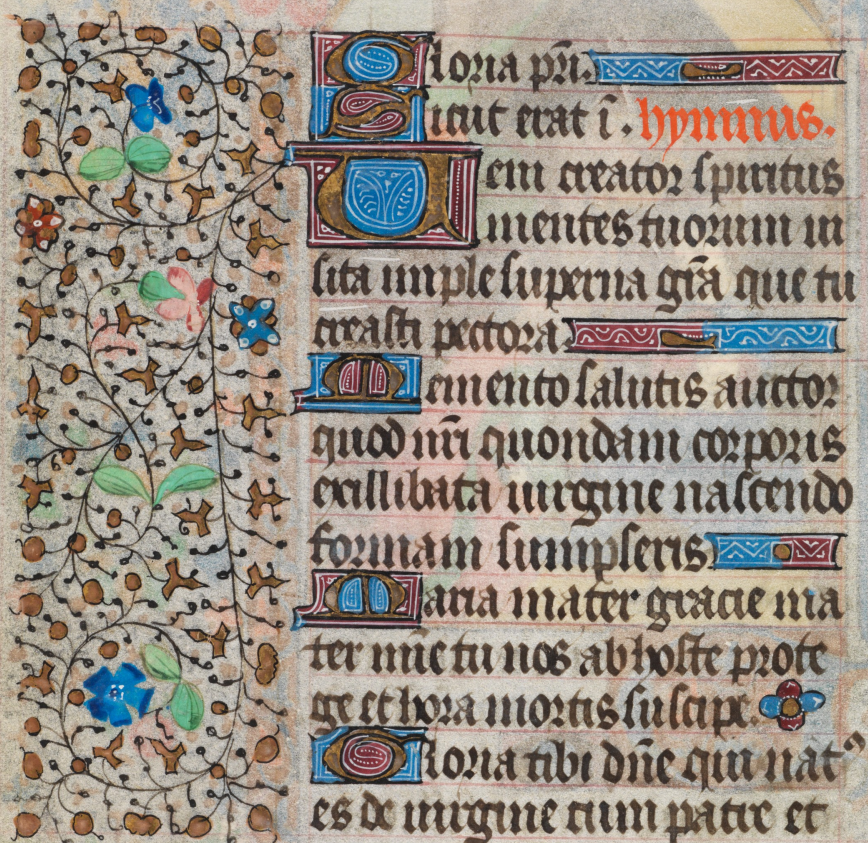 Gloria pr̄i.
Sicut erat ī. hymnus.
Veni creator spiritus
mentes tuorum in
sita imple superna gr̄a que tu
creasti pectora.
Memento salutis auctor
quod nr̄i quondam corporis
ex illibata uirgine nascendo
formam sumpseris
Maria mater gracie ma
ter mīe tu nos ab hoste prote
ge et hora mortis suscipe.
Gloria tibi dn̄e qui natꝰ
es de uirgine cum patre et